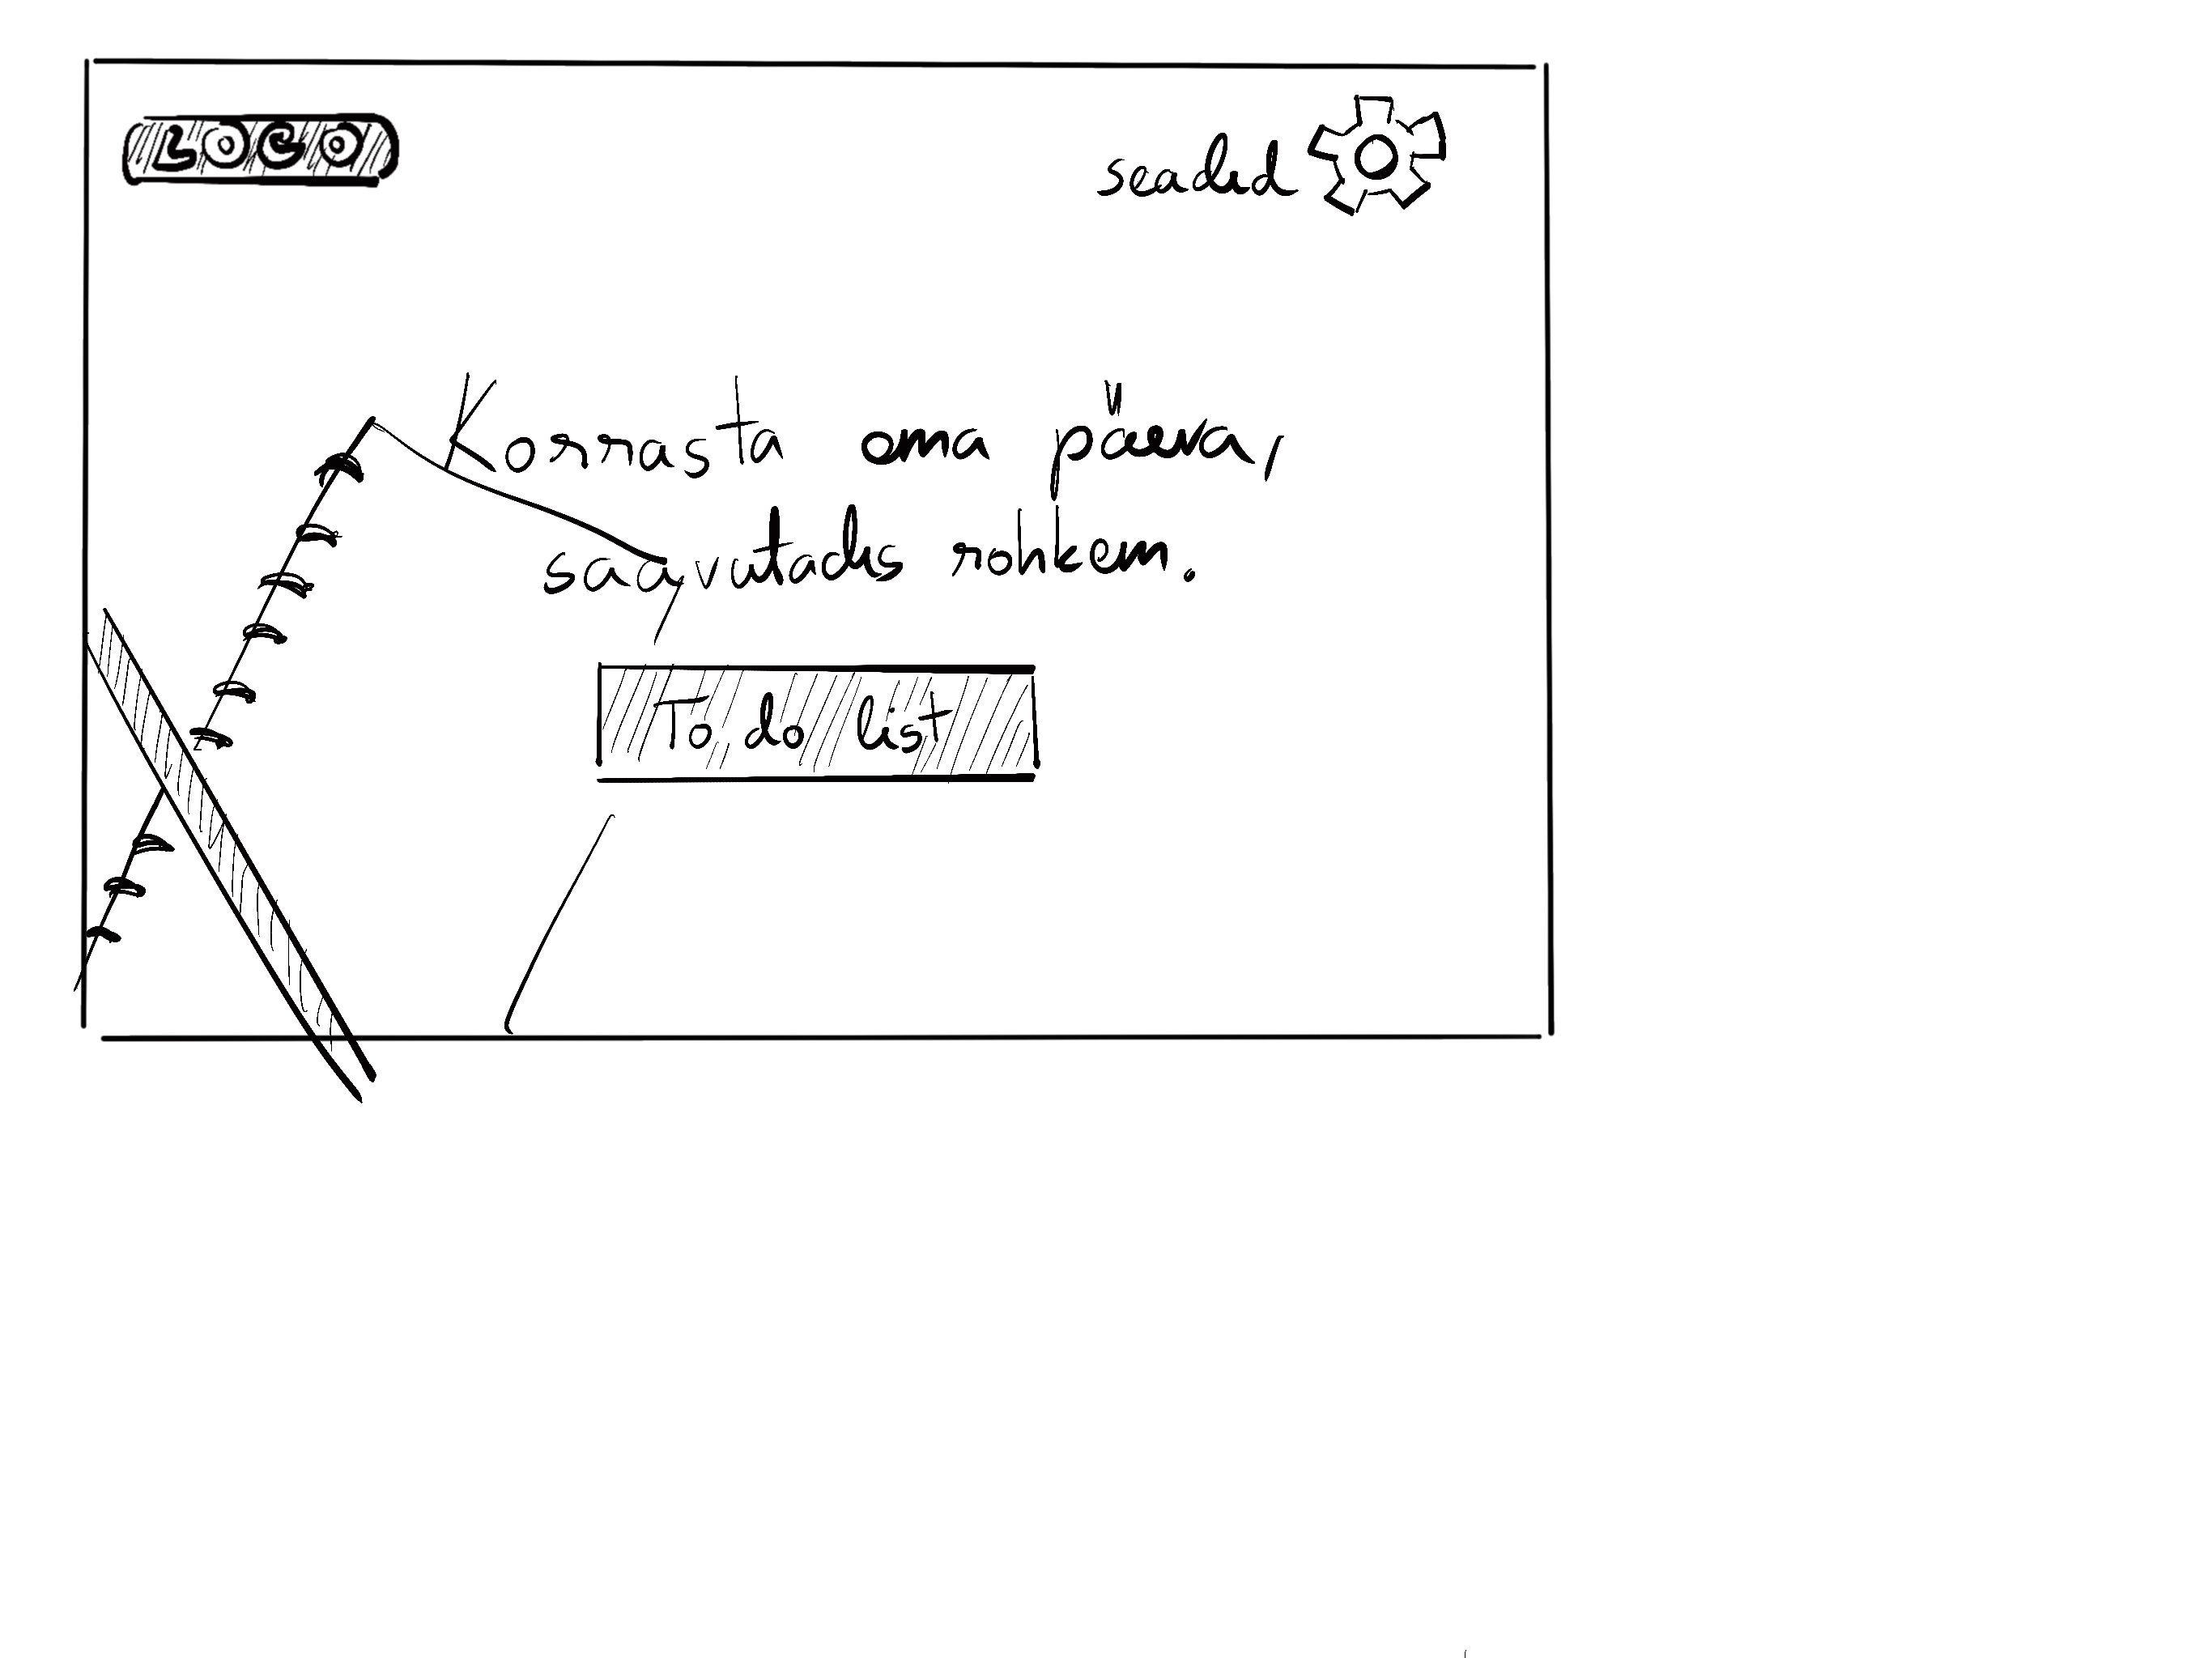 LOGO
seaded
Korrasta oma päeva,
saavutades rohkem.
To do list